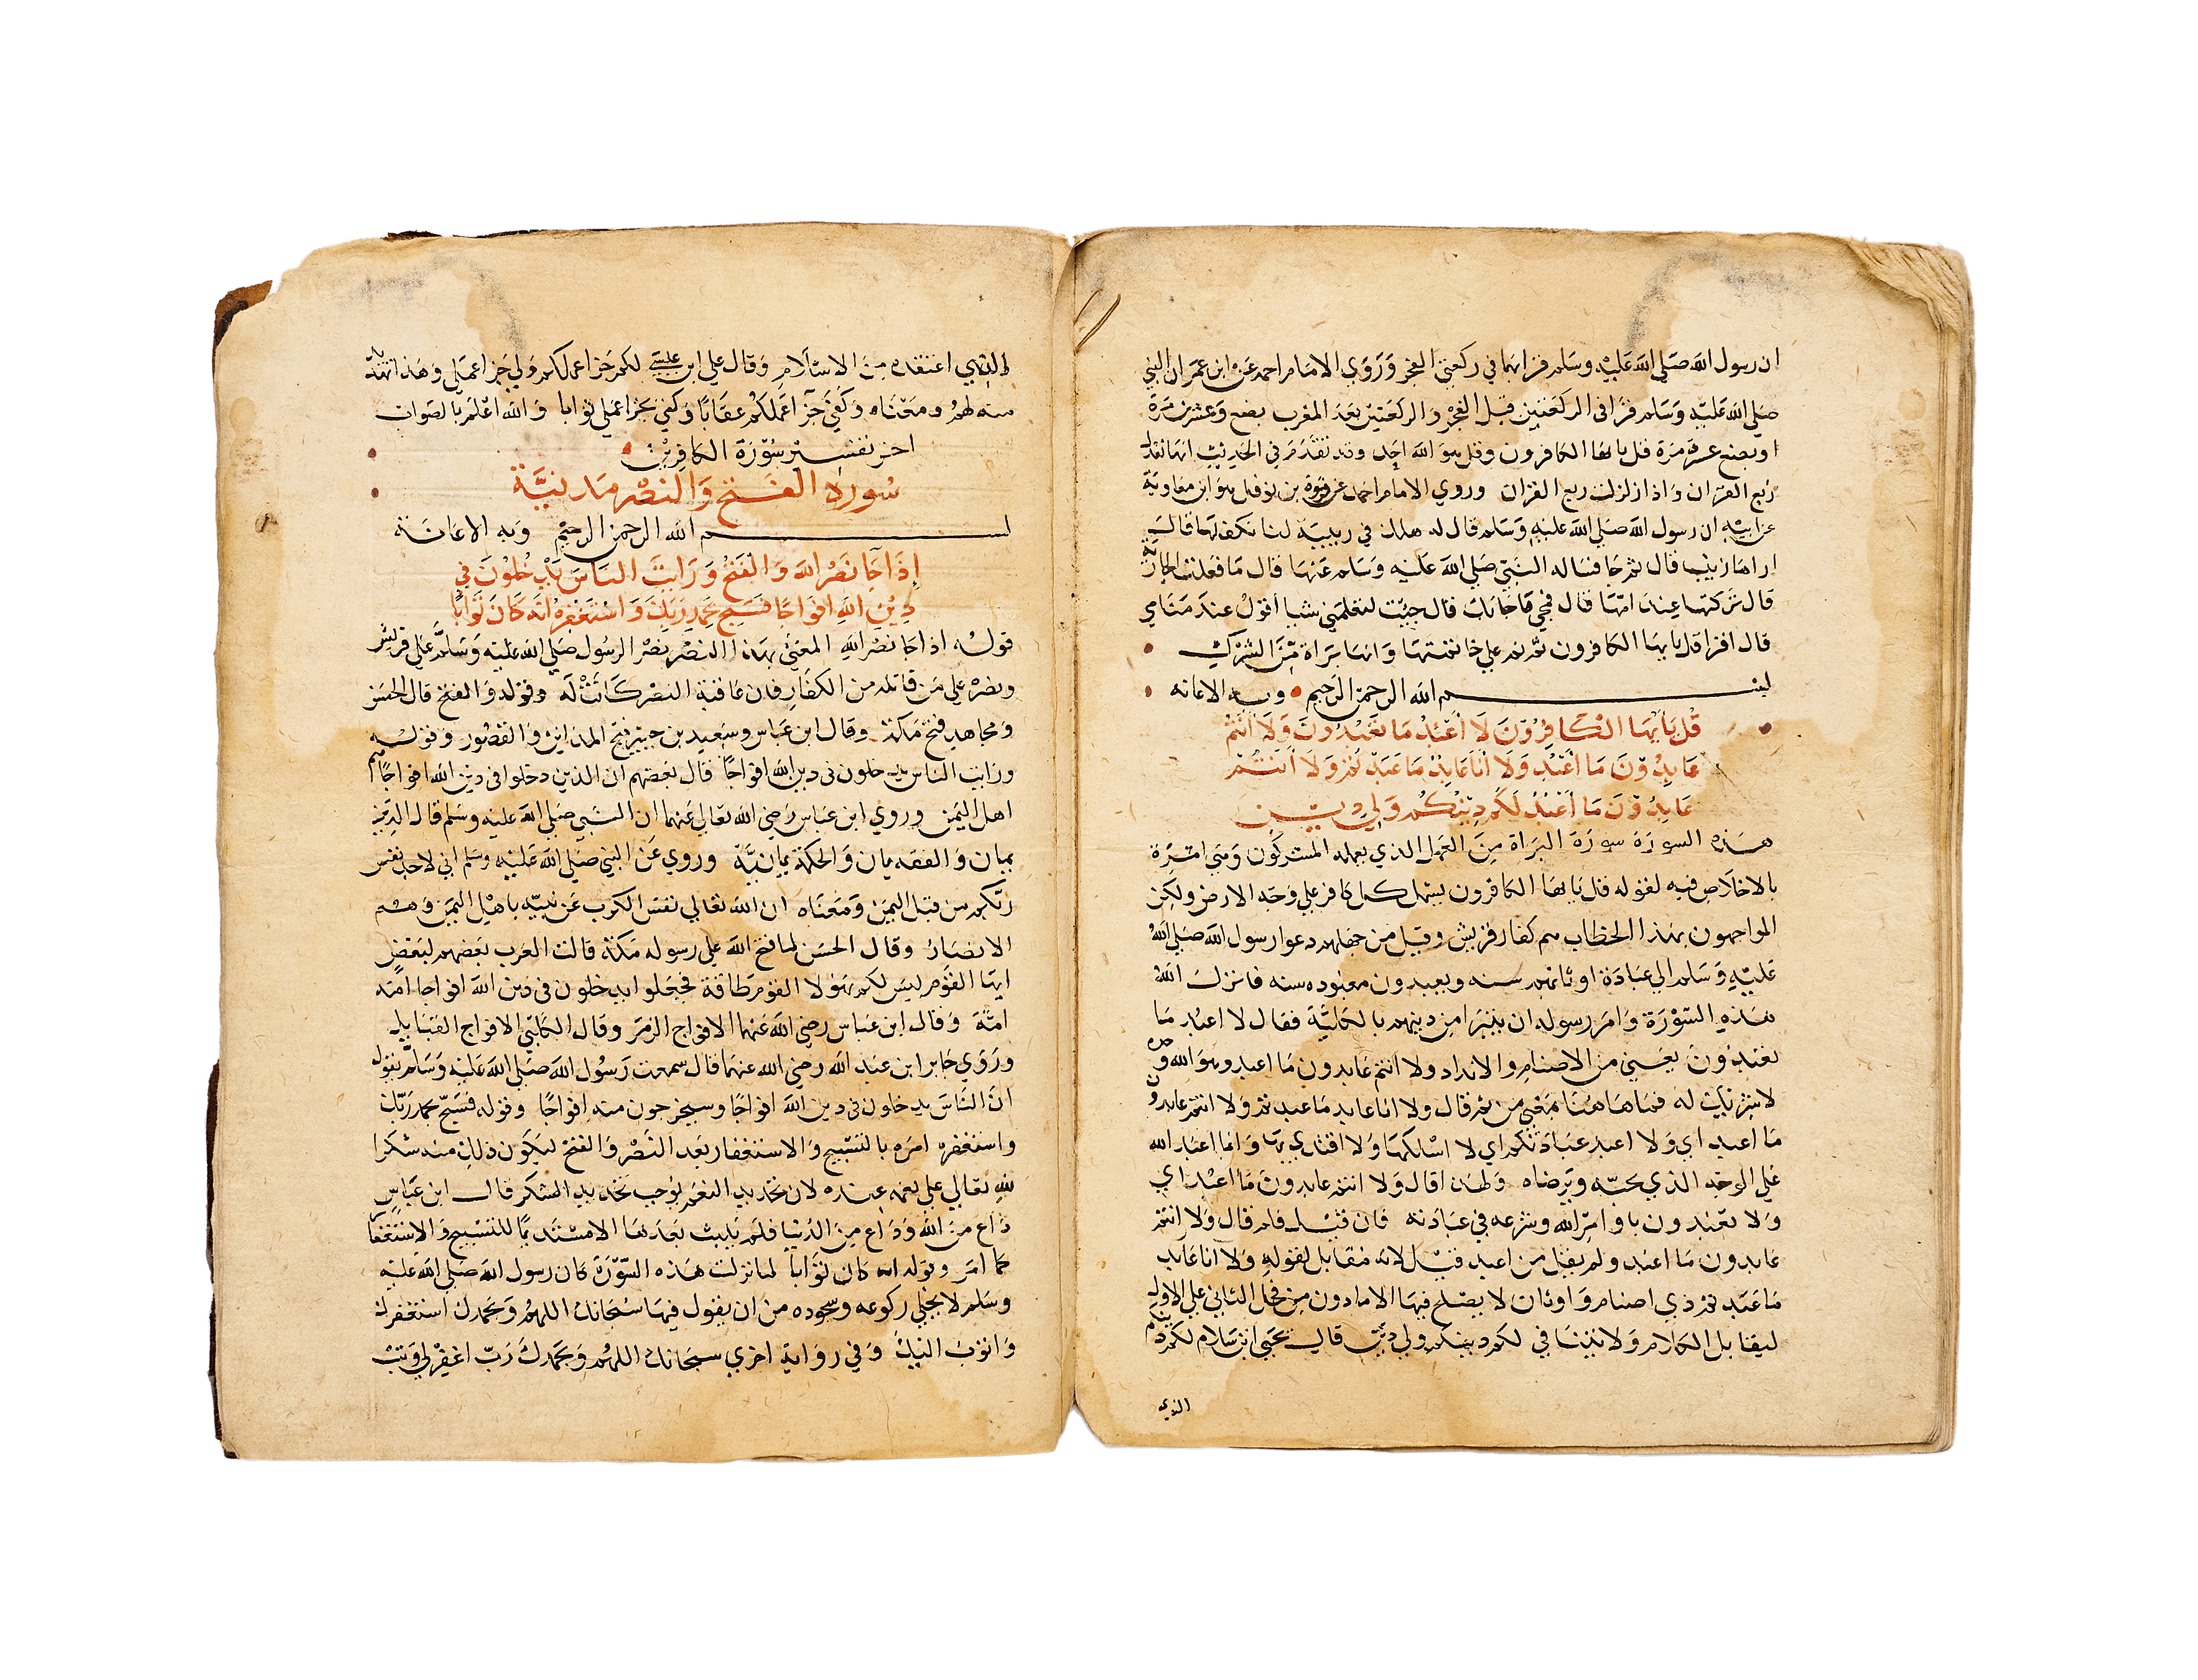 ان رسول الله صلي الله عليه وسلم قرا بها في ركعتي الفجر وروي الامام احمد عن ابن عمر ان النبي
صلي الله عليه وسلم قرا في الركعتين قبل الفجر والركعتين بعد المغرب بضع وعشرين مرة
او بضع عشرة مرة قل يا يها الكافرون وقل هو الله احد وقد تقدم في الحديث انها تعدل
ربع القران واذا زلزلت ربع القران وروي الامام احمد عن فروة بن نوفل هو ابن معاوية
عن ابيه ان رسول الله صلي الله عليه وسلم قال له هل لك في ربيبة لنا تكفلها قال
اراها زينب قال ثم جا فساله النبي صلي الله عليه وسلم عنها قال ما فعلت الجارية
قال تركتها عند امها قال فمجي ما جا بك قال جيت لتعلمني شيا اقول عند منامي
قال اقرا قل يا يها الكافرون ثم نم علي خاتمتها وانها براة من الشرك
بسم الله الرحمن الرحيم وبه الاعانه
قُل يَا يُّهَا الْكَافِرُوْنَ لَا أَعْبُدُ مَا تَعْبُدُونَ وَلَا أَنْتُمْ
عَابِدُوْنَ مَا أَعْبُدُ وَلَا أَنَا عَابِدٌ مَا عَبَدْتُمْ وَلَا أَنْتُمْ
عَابِدُوْنَ مَا أَعْبُدُ لَكُمْ دِيْنُكُمْ وَلِيَ دِيْن
هذه السورة سورة البراة من العمل الذي يعمله المشركون وهي امرة
بالاخلاص فيه لقوله قل يا يها الكافرون يشمل كل كافر علي وجه الارض ولكن
المواجهون بهذا الخطاب هم كفار قريش وقيل من جهلهم دعوا رسول الله صلي الله
عليه وسلم الي عبادة اوثانهم سنه ويعبدون معبوده سنه فانزل الله
هذه السورة وامر رسوله ان يتبرا من دينهم بالكلية فقال لا اعبد ما
تعبدون يعني من الاصنام والانداد ولا انتم عابدون ما اعبد وهو الله وحده
لا شريك له فما هاهنا بمعني من ثم قال ولا انا عابد ما عبدتم ولا انتم عابدون
ما اعبد اي ولا اعبد عبادتكم اي لا اسلكها ولا اقتدي بها وانما اعبد الله
علي الوجه الذي يحبه ويرضاه ولهذا قال ولا انتم عابدون ما اعبد اي
ولا تعبدون باوامر الله وشرعه في عبادته فان قيل فلم قال ولا انتم
عابدون ما اعبد ولم يقل من اعبد قيل لانه مقابل لقوله ولا انا عابد
ما عبدتم ذي اصنام واوثان لا يصلح فيها الا ما دون من فحمل الثاني علي الاول
ليتقابل الكلام ولا يتنافي لكم دينكم ولي دين قال يحيي ابن سلام لكم دينكم
الذي
الذي اعتقده من الاسلام وقال علي ابن عيسي لكم جزا اعمالكم ولي جزا عملي وهذا تهديد
منه لهم ومعناه وكفي جزآ اعمالكم عقابا وكفي بجزا عملي ثوابا والله اعلم بالصواب
اخر تفسير سورة الكافرين
سورة الفتح والنصر مدنيَّة
بسم الله الرحمن الرحيم وبه الاعانة
إِذَا جَآ نَصْرُ اللهِ وَالْفَتْحُ وَرَايْتَ النَاسَ يَدْخُلُوْنَ فِي
دِيْنِ اللهِ افْوَاجًا فَسَبِّحْ بِحَمْدِ رَبِّكَ وَاسْتَغْفِرْهُ انَّهُ كَانَ تَوَّابًا
قوله اذا جا نصر الله المعني بهذا النصر نصر الرسول صلي الله عليه وسلم علي قريش
ونصره علي من قاتله من الكفار فان عاقبة النصر كانت له وقوله والفتح قال الحسن
ومجاهد فتح مكة وقال ابن عباس وسعيد بن جبير فتح المداين والقصور وقوله
ورايت الناس يدخلون في دين الله افواجا قال بعضهم ان الذين دخلوا في دين الله افواجا هم
اهل اليمن وروي ابن عباس رضي الله تعالي عنهما ان النبي صلي الله عليه وسلم قال الدين
يمان والفقه يمان والحكمة يمانيَّة وروي عن النبي صلي الله عليه وسلم اني لاجد نفس
ربكم من قبل اليمن ومعناه ان الله تعالي نفس الكرب عن نبيه باهل اليمن وهم
الانصار وقال الحسن لما فتح الله علي رسوله مكة قالت العرب بعضهم لبعض
ايها القوم ليس لكم بهولا القوم طاقة فجعلوا يدخلون في دين الله افواجا امة
امة وقال ابن عباس رضي الله عنهما الافواج الزمر وقال الكلبي الافواج القبايل
وروي جابر ابن عبد الله رضي الله عنهما قال سمعت رسول الله صلي الله عليه وسلم يقول
ان الناس يدخلون في دين الله افواجا وسيخرجون منه افواجا وقوله فسبح بحمد ربك
واستغفره امره بالتسبيح والاستغفار بعد النصر والفتح ليكون ذلك منه شكرا
لله تعالي علي نعمه عنده لان تجديد النعم يوجب تجديد الشكر قال ابن عباس
داع من الله ووداع من الدنيا فلم يلبث بعدها الا مستديما للتسبيح والاستغفار
كما امر وقوله انه كان توابا لما نزلت هذه السورة كان رسول الله صلي الله عليه
وسلم لا يخلي ركوعه وسجوده من ان يقول فيها سبحانك اللهم وبحمدك استغفرك
واتوب اليك وفي رواية اخري سبحانك اللهم وبحمدك رب اغفر لي وتب